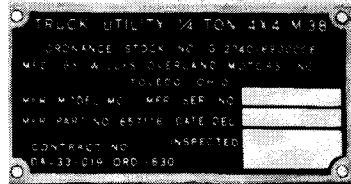 TRUCK UTILITY 1/4 TON 4X4 M38
ORDNANCE STOCK NO. G
MFD. BY WILLYS OVERLAND MOTORS INC.
TOLEDO OHIO
MFR MODEL MC MFR SER NO
MFR PART NO 657116 DATE DEL
INSPECTED
CONTRACT NO
DA-33-019 ORD-630